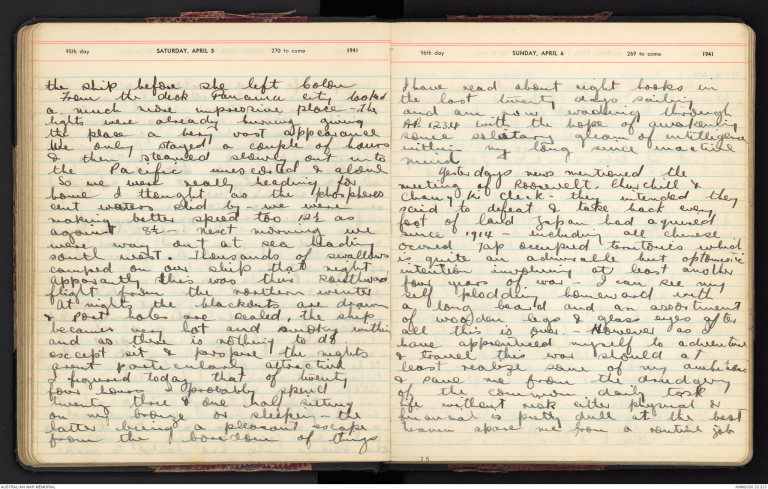 95th day SATURDAY, APRIL 5 270 to come 1941
the ship before she left Colon
From the deck Panama city looked
a much more impressive place - The
lights were already burning giving
the place a very vast appearance
We only stayed a couple of hours
& then steamed slowly out into
the Pacific unescorted & alone
So we were really heading for
home I thought as the phosphores
cent waters slid by - we were
making better speed too 12½ as
against 8½ - next morning we
were way out at sea heading
south west. Thousands of swallows
camped on our ship that night
apparently this was their southward
flight from the northern winter
At nights the blackouts are drawn
& Port holes are sealed, the ship
becomes very hot and smokey within
and as there is nothing to do
except sit & perspire the nights
arent particularly attractive
I figured today that of twenty
four hours I probably spend
twenty three & one half sitting
on my bronze or sleeping - the
latter being a pleasant escape
from the boredom of things
96th day SUNDAY, APRIL 6 269 to come 1941
I have read about eight books in
the last twenty days sailing
and am now wading through
1234 with the hope of awakening
some solatary gleam of intelligence
within my long since inactive
mind
Yesterdays news mentioned the
meeting of Roosevelt, Churchill &
Chang Ki Check - they intended they
said to defeat & take back every
foot of land Japan had aquired
since 1914 - including all chinese
owned Jap occupied territories which
is quite an admirable but optomistic
intention involving at least another
four years of war - I can see my
self plodding homeward with
a long beard and an assortment
of wooden legs & glass eyes after
all this is over - However as I
have apprenticed myself to adventure
& travel this war should at
least realize some of my ambitions
& save me from the drudgery
of the common daily task
life without risk either physical or
financial is pretty dull at the best
heaven spare me from a routine job
AUSTRALIAN WAR MEMORIAL